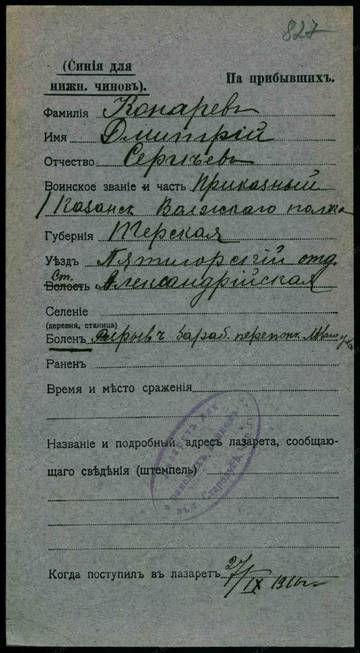 827
(Синія для
нижн. чиновъ).
На прибывшихъ.
Фамилія Конаревъ
Имя Дмитрій
Отчество Сергѣевъ
Воинское званіе и часть Приказный
1 Казанск Волжскаго полка
Губернія Терская
Уѣздъ Пятигорскій отд.
Ст.
Волость Александрійская
Селеніе
(деревня, станица)
Боленъ разрывъ бараб. перепонк.
Раненъ
Время и мѣсто сраженія
Названіе и подробный адресъ лазарета, сообщаю-
щаго свѣдѣнія (штемпель)
Когда поступилъ въ лазаретъ 27/IX 1916 г.